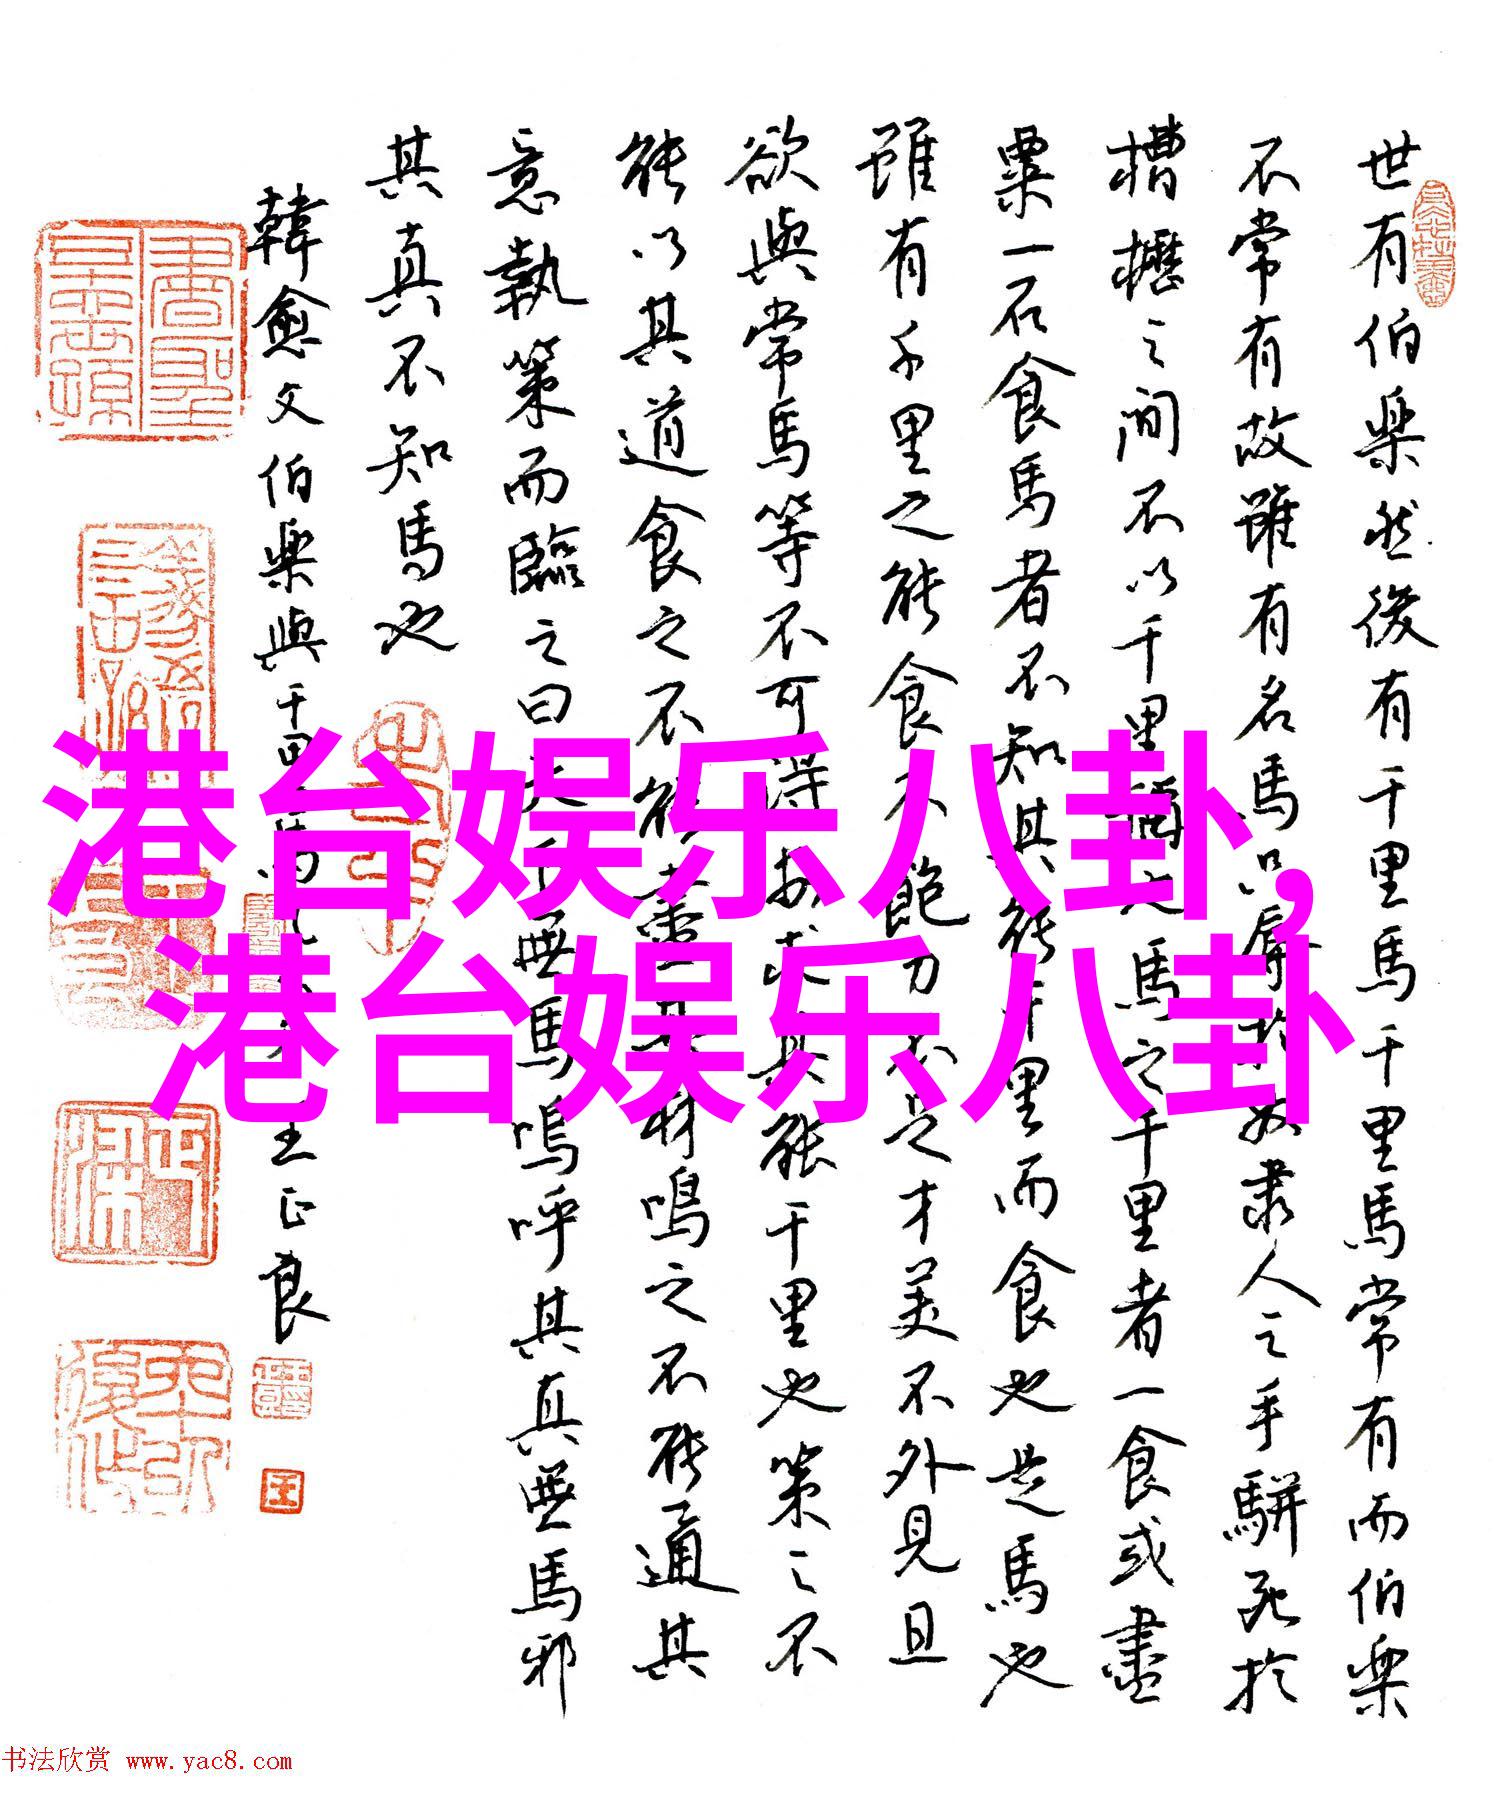 港台娱乐八卦,
港台娱乐八卦
世有伯樂然後有千里馬千里馬常有而伯樂
不常有故雖有名馬只辱於奴隶人之手駢死於
槽櫪之间不以千里稱也馬之千里者一食或盡
粟一石食馬者不知其能千里而食也是馬也
雖有千里之能食不飽力不足才美不外見且
欲與常馬等不可得安求其能千里也策之不
能以其道食之不能盡其材鳴之不能通其
意執策而臨之曰天下無馬嗚呼其真無馬邪
其真不知馬也
韓愈文伯樂與千里馬 王正良
书法欣赏 www.yac8.com